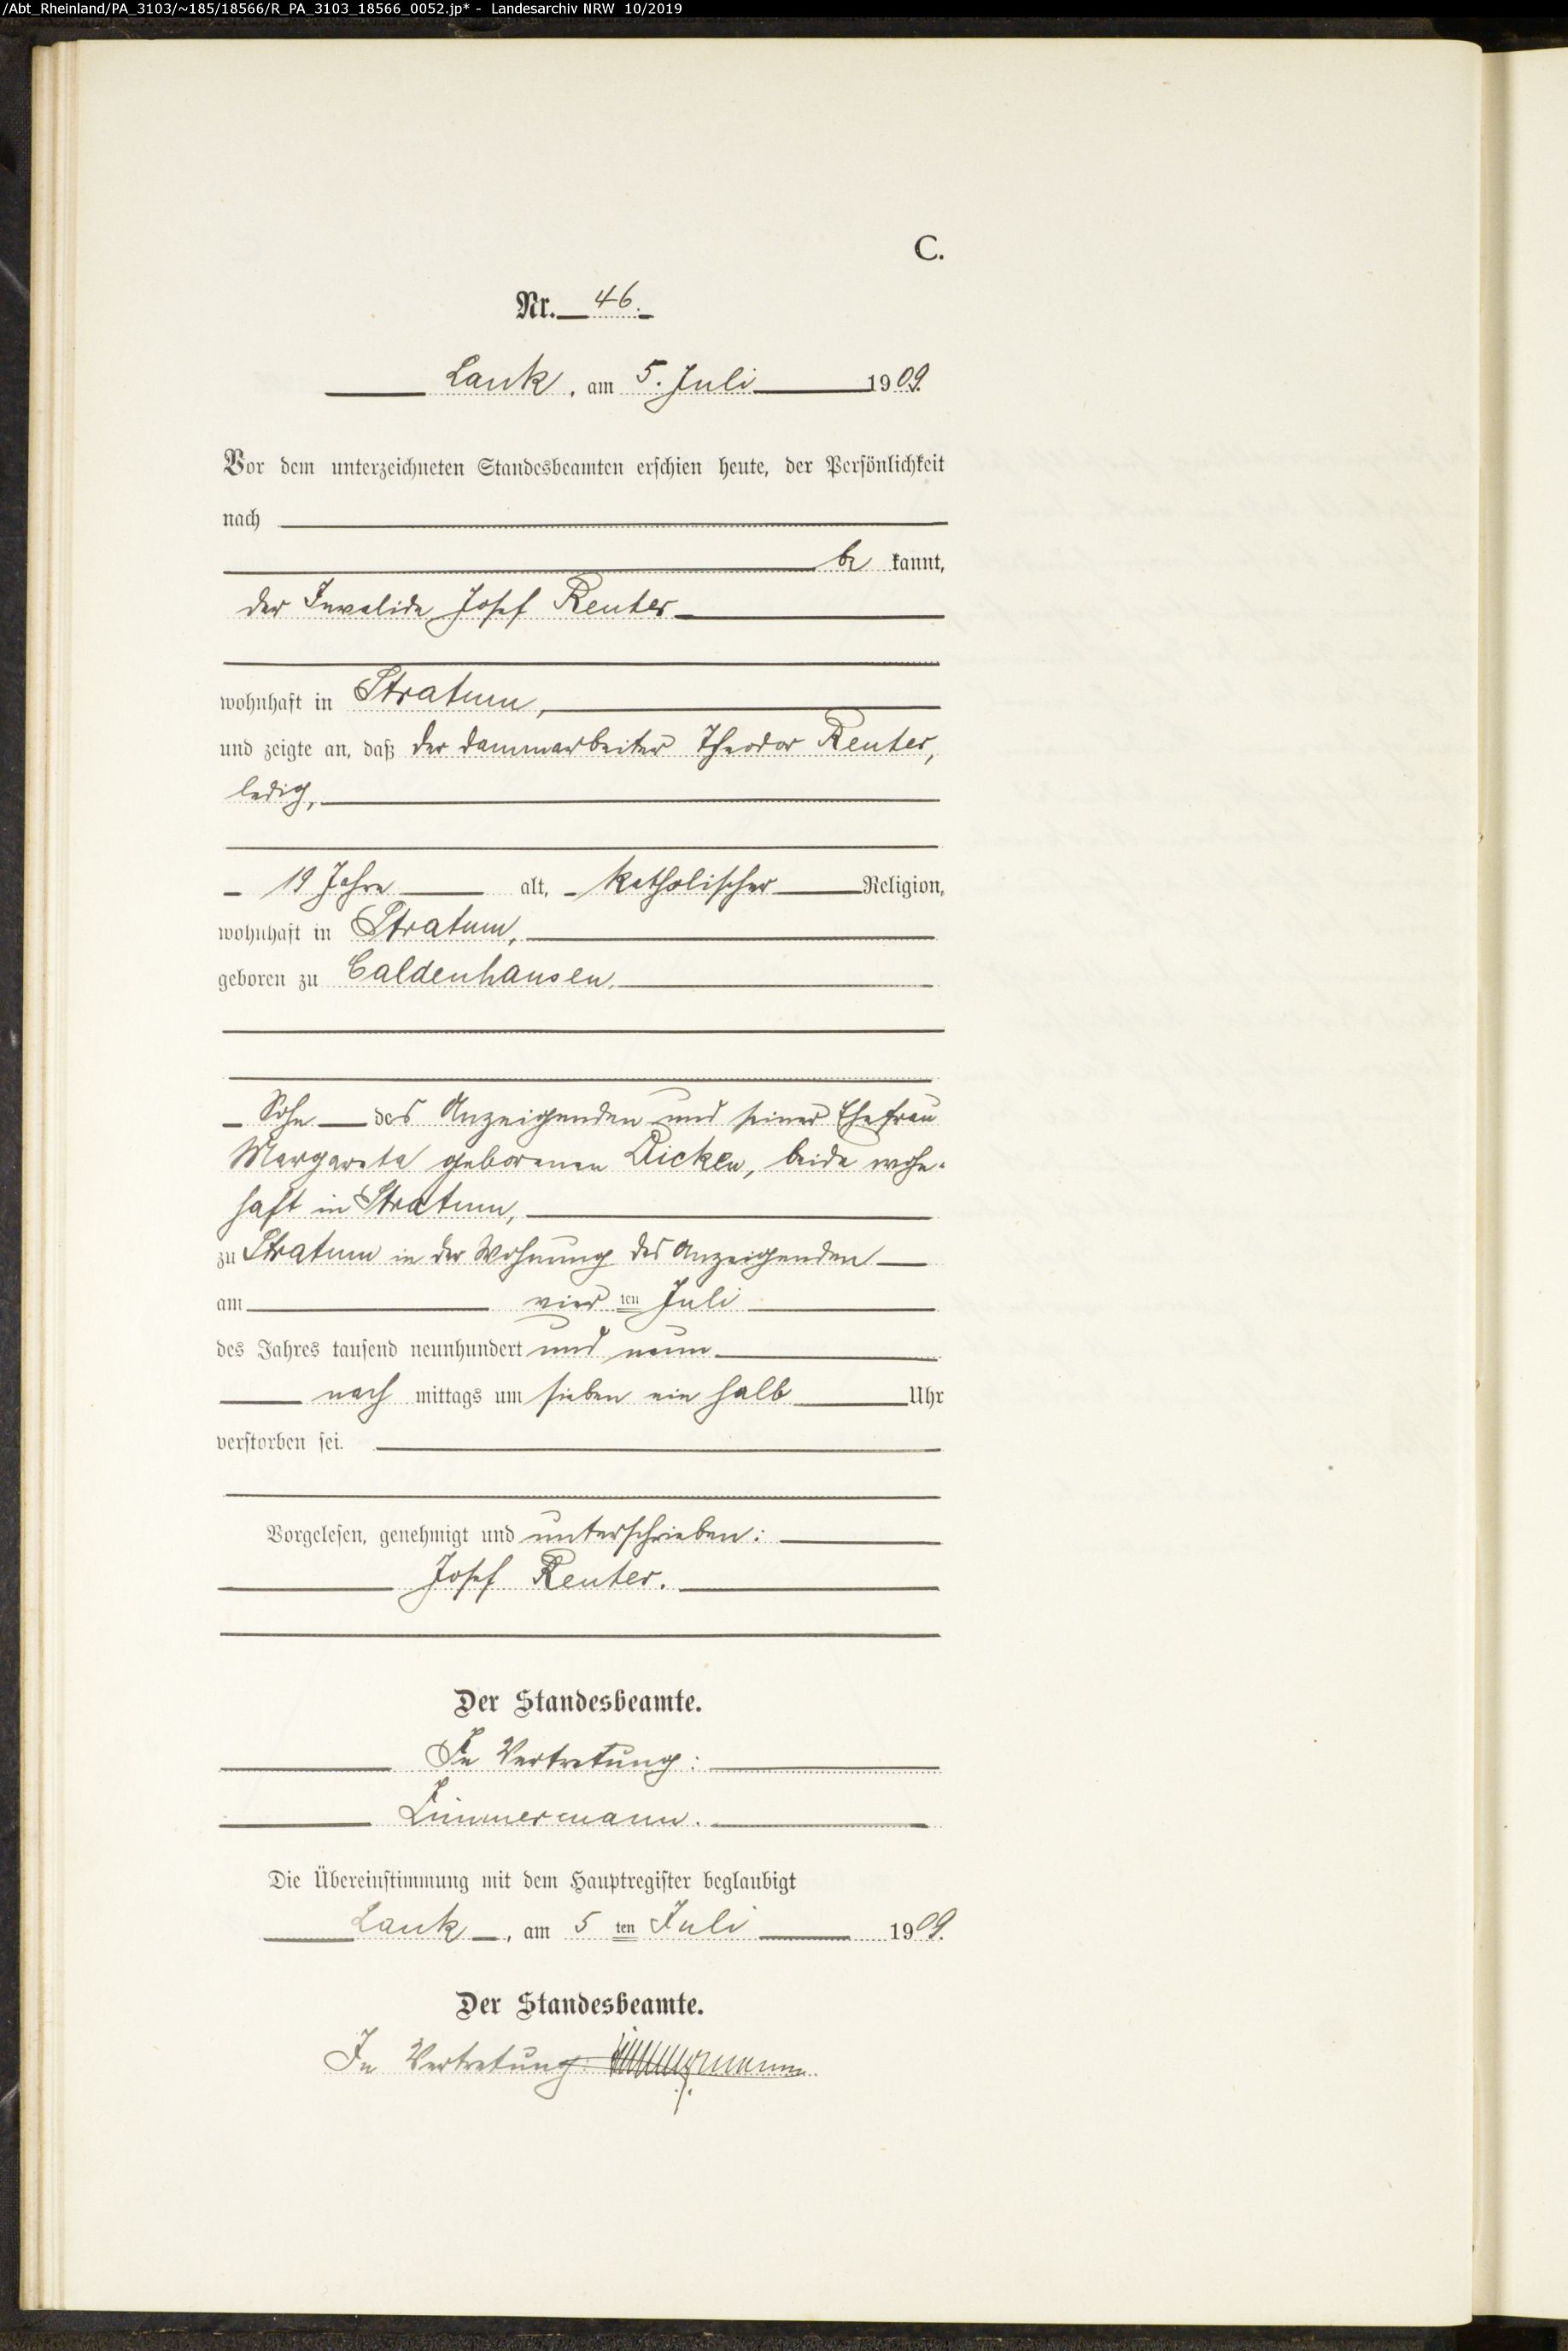 /Abt_Rheinland/PA_3103/~185/18566/R_PA_3103_18566_0052.jp* - Landesarchiv NRW 10/2019
C.
Nr. 46.
Lank, am 5. Juli 1909.
Vor dem unterzeichneten Standesbeamten erschien heute, der Persönlichkeit
nach
be kannt,
der Invalide Josef Reuter
wohnhaft in Stratum,
und zeigte an, daß der Dammarbeiter Theodor Reuter,
ledig,
19 Jahre alt, katholischer Religion,
wohnhaft in Stratum,
geboren zu Caldenhausen,
Sohn des Anzeigenden und seiner Ehefrau
Margareta geborenen Dicken, beide wohn-
haft in Stratum,
zu Stratum in der Wohnung des Anzeigenden
am vier ten Juli
des Jahres tausend neunhundert und neun
nach mittags um sieben ein halb Uhr
verstorben sei.
Vorgelesen, genehmigt und unterschrieben:
Josef Reuter.
Der Standesbeamte.
In Vertretung:
Zimmermann.
Die Übereinstimmung mit dem Hauptregister beglaubigt
Lank, am 5 ten Juli 1909.
Der Standesbeamte.
In Vertretung: Zimmermann.